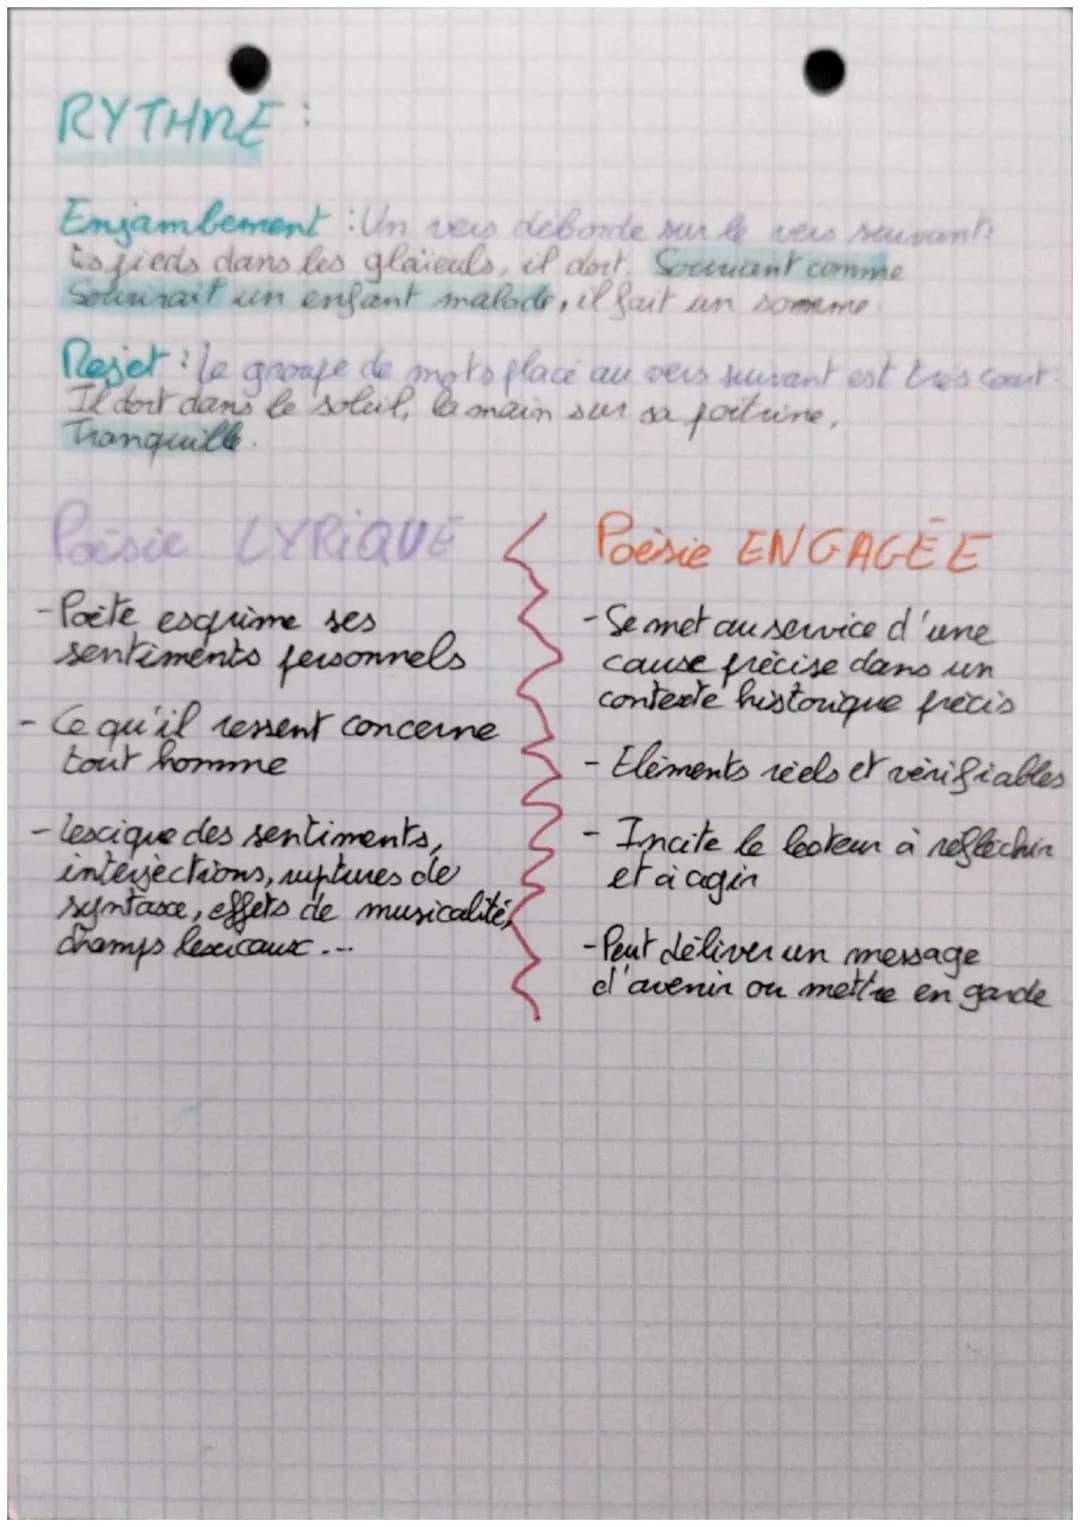 RYTHME :
Enjambement : Un vers déborde sur le vers suivant:
Les pieds dans les glaïeuls, il dort. Souriant comme
Sourirait un enfant malade, il fait un somme
Rejet : Le groupe de mots placé au vers suivant est très court.
Il dort dans le soleil, la main sur sa poitrine,
Tranquille.
Poésie LYRIQUE
-Poète exprime ses
sentiments personnels
- Ce qu'il ressent concerne
tout homme
-lexique des sentiments,
interjections, ruptures de
syntaxe, effets de musicalité,
champs lexicaux...
Poésie ENGAGÉE
-Se met au service d'une
cause précise dans un
contexte historique précis
- Eléments réels et vérifiables
- Incite le lecteur à réfléchir
et à agir
-Peut délivrer un message
d'avenir ou mettre en garde